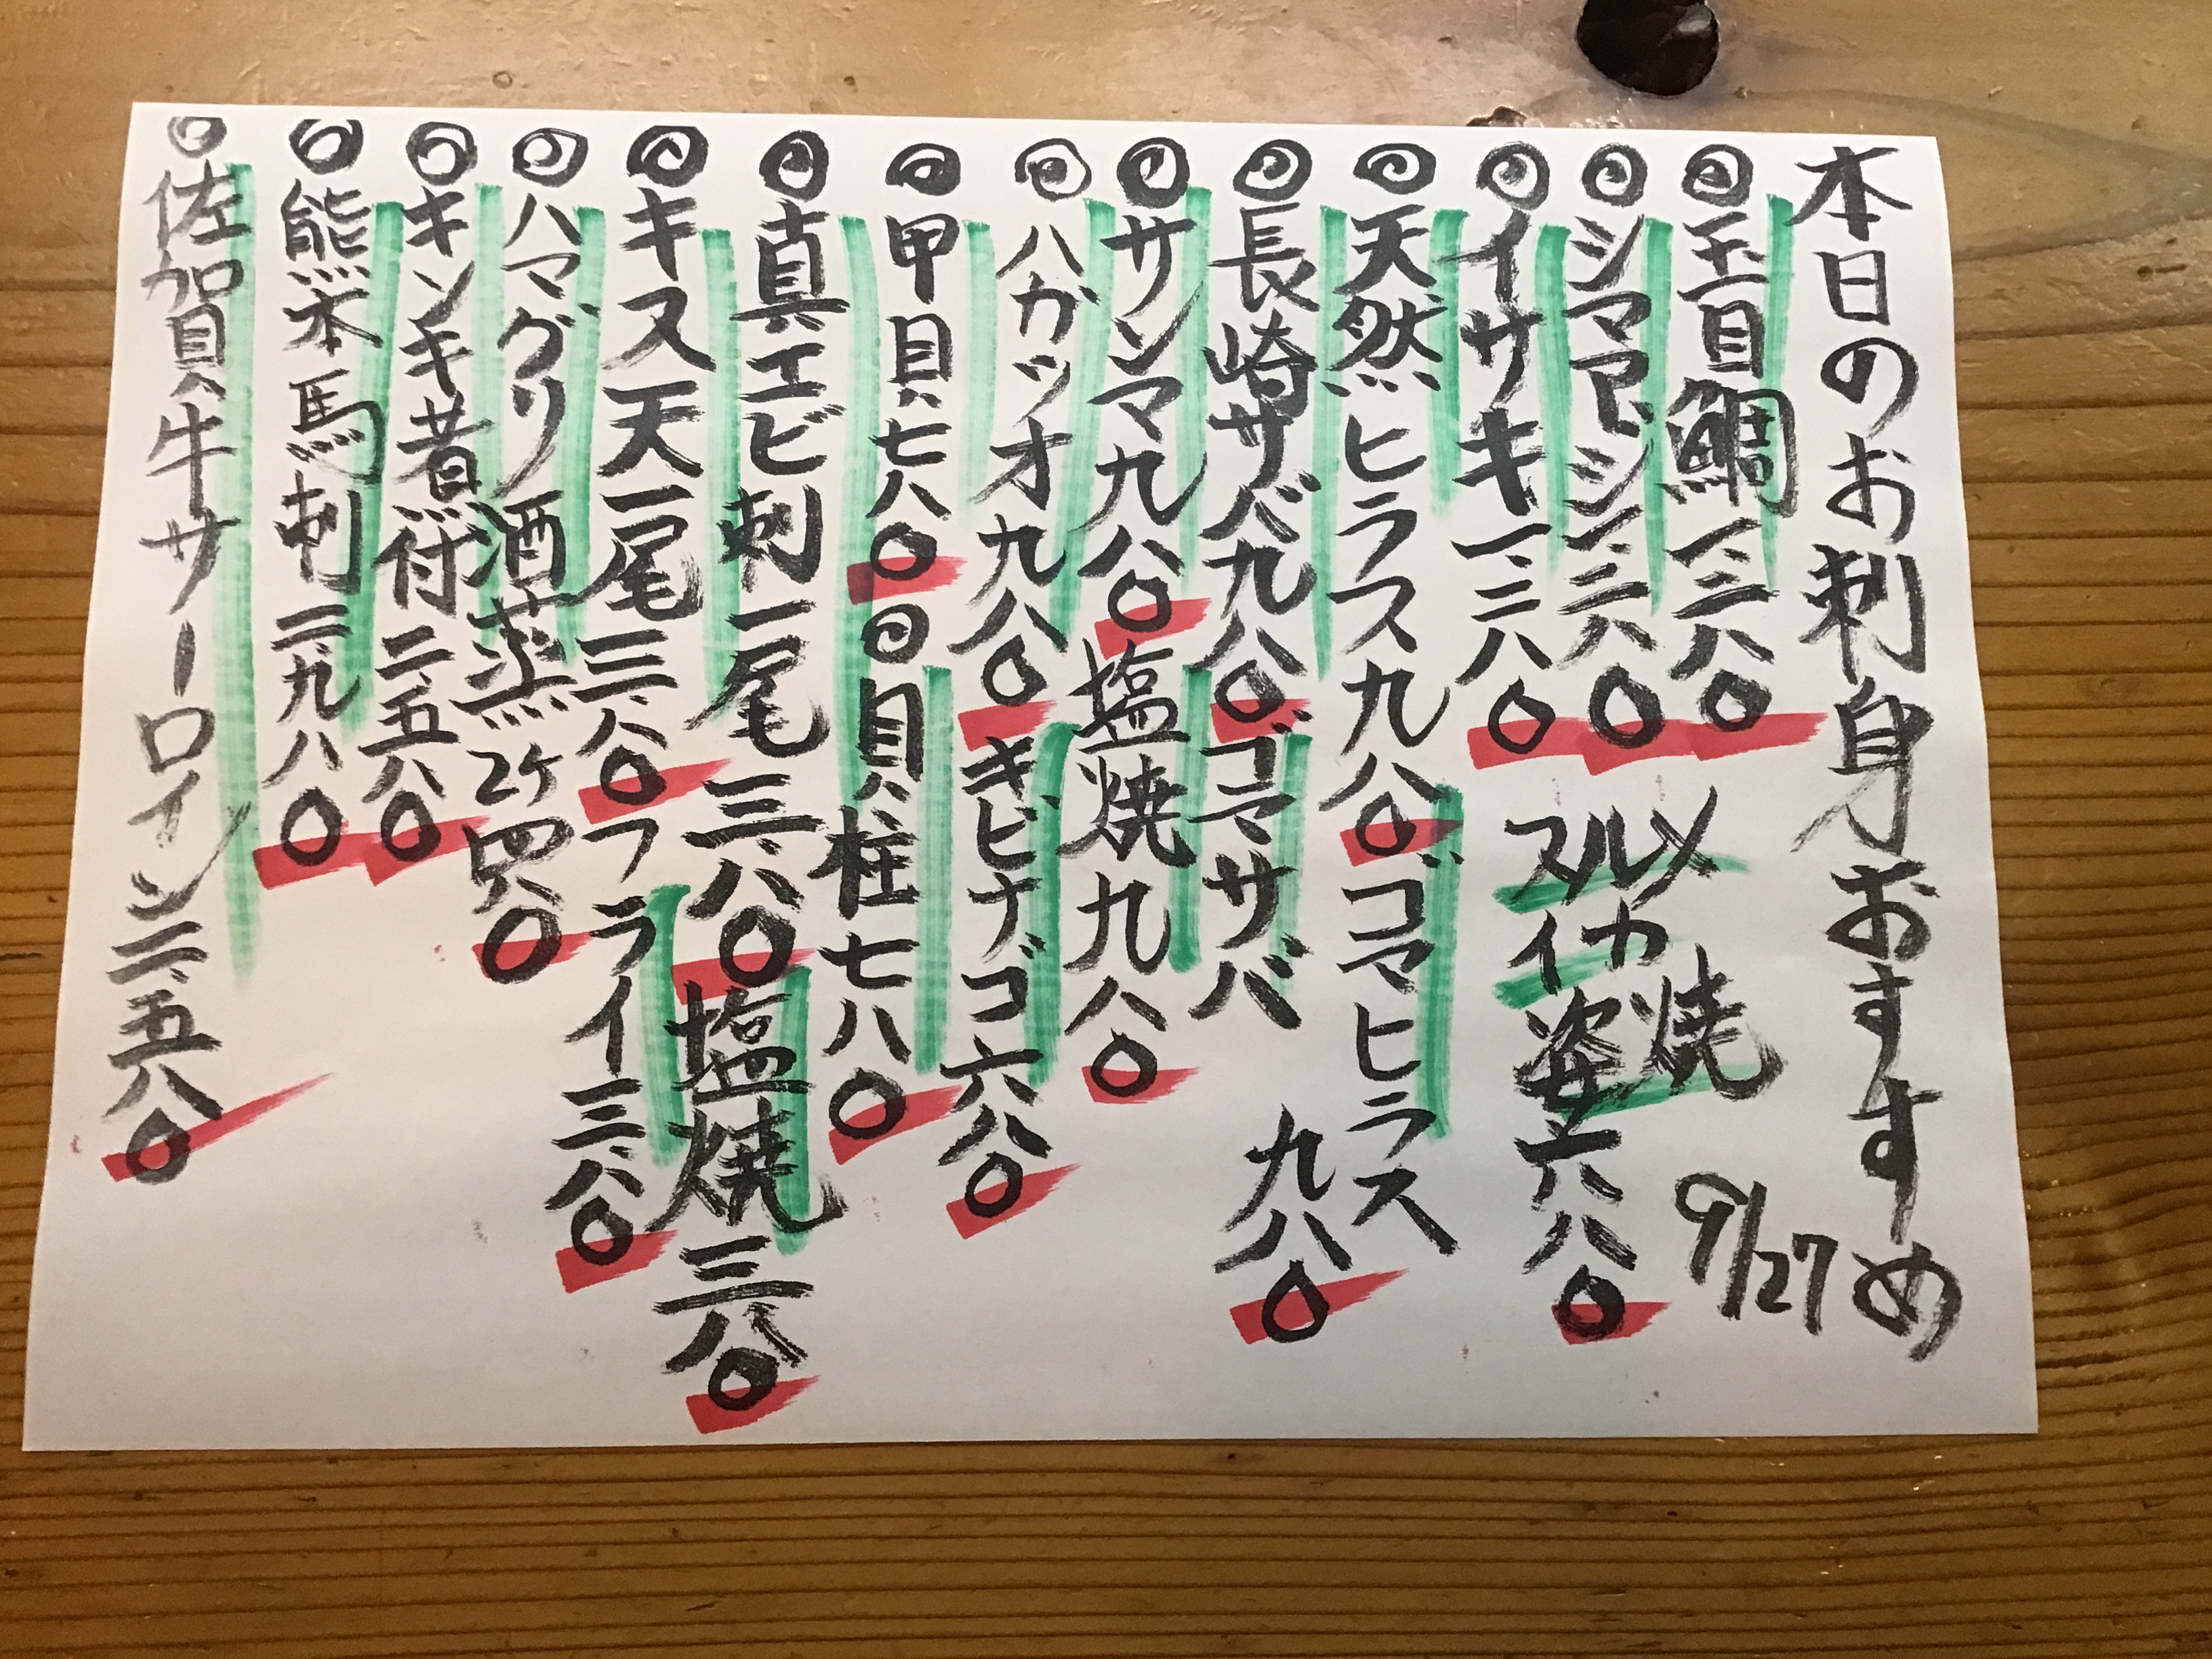 本日のお刺身おすすめ
9/27
◎玉目鯛一、二八〇
◎シマアジ一、二八〇
◎イサキ一、二八〇
スルメイカ姿焼六八〇
◎天然ヒラス九八〇
ゴマヒラス九八〇
◎長崎サバ九八〇
ゴマサバ
◎サンマ九八〇
塩焼九八〇
◎ハガツオ九八〇
キビナゴ六八〇
◎甲貝七八〇
◎貝柱七八〇
◎真エビ刺一尾三八〇
塩焼三八〇
◎キス天一尾三八〇
フライ三八〇
◎ハマグリ酒蒸2ヶ四八〇
◎キンキ煮付二、五八〇
◎熊本馬刺二、九八〇
◎佐賀牛サーロイン二、五八〇